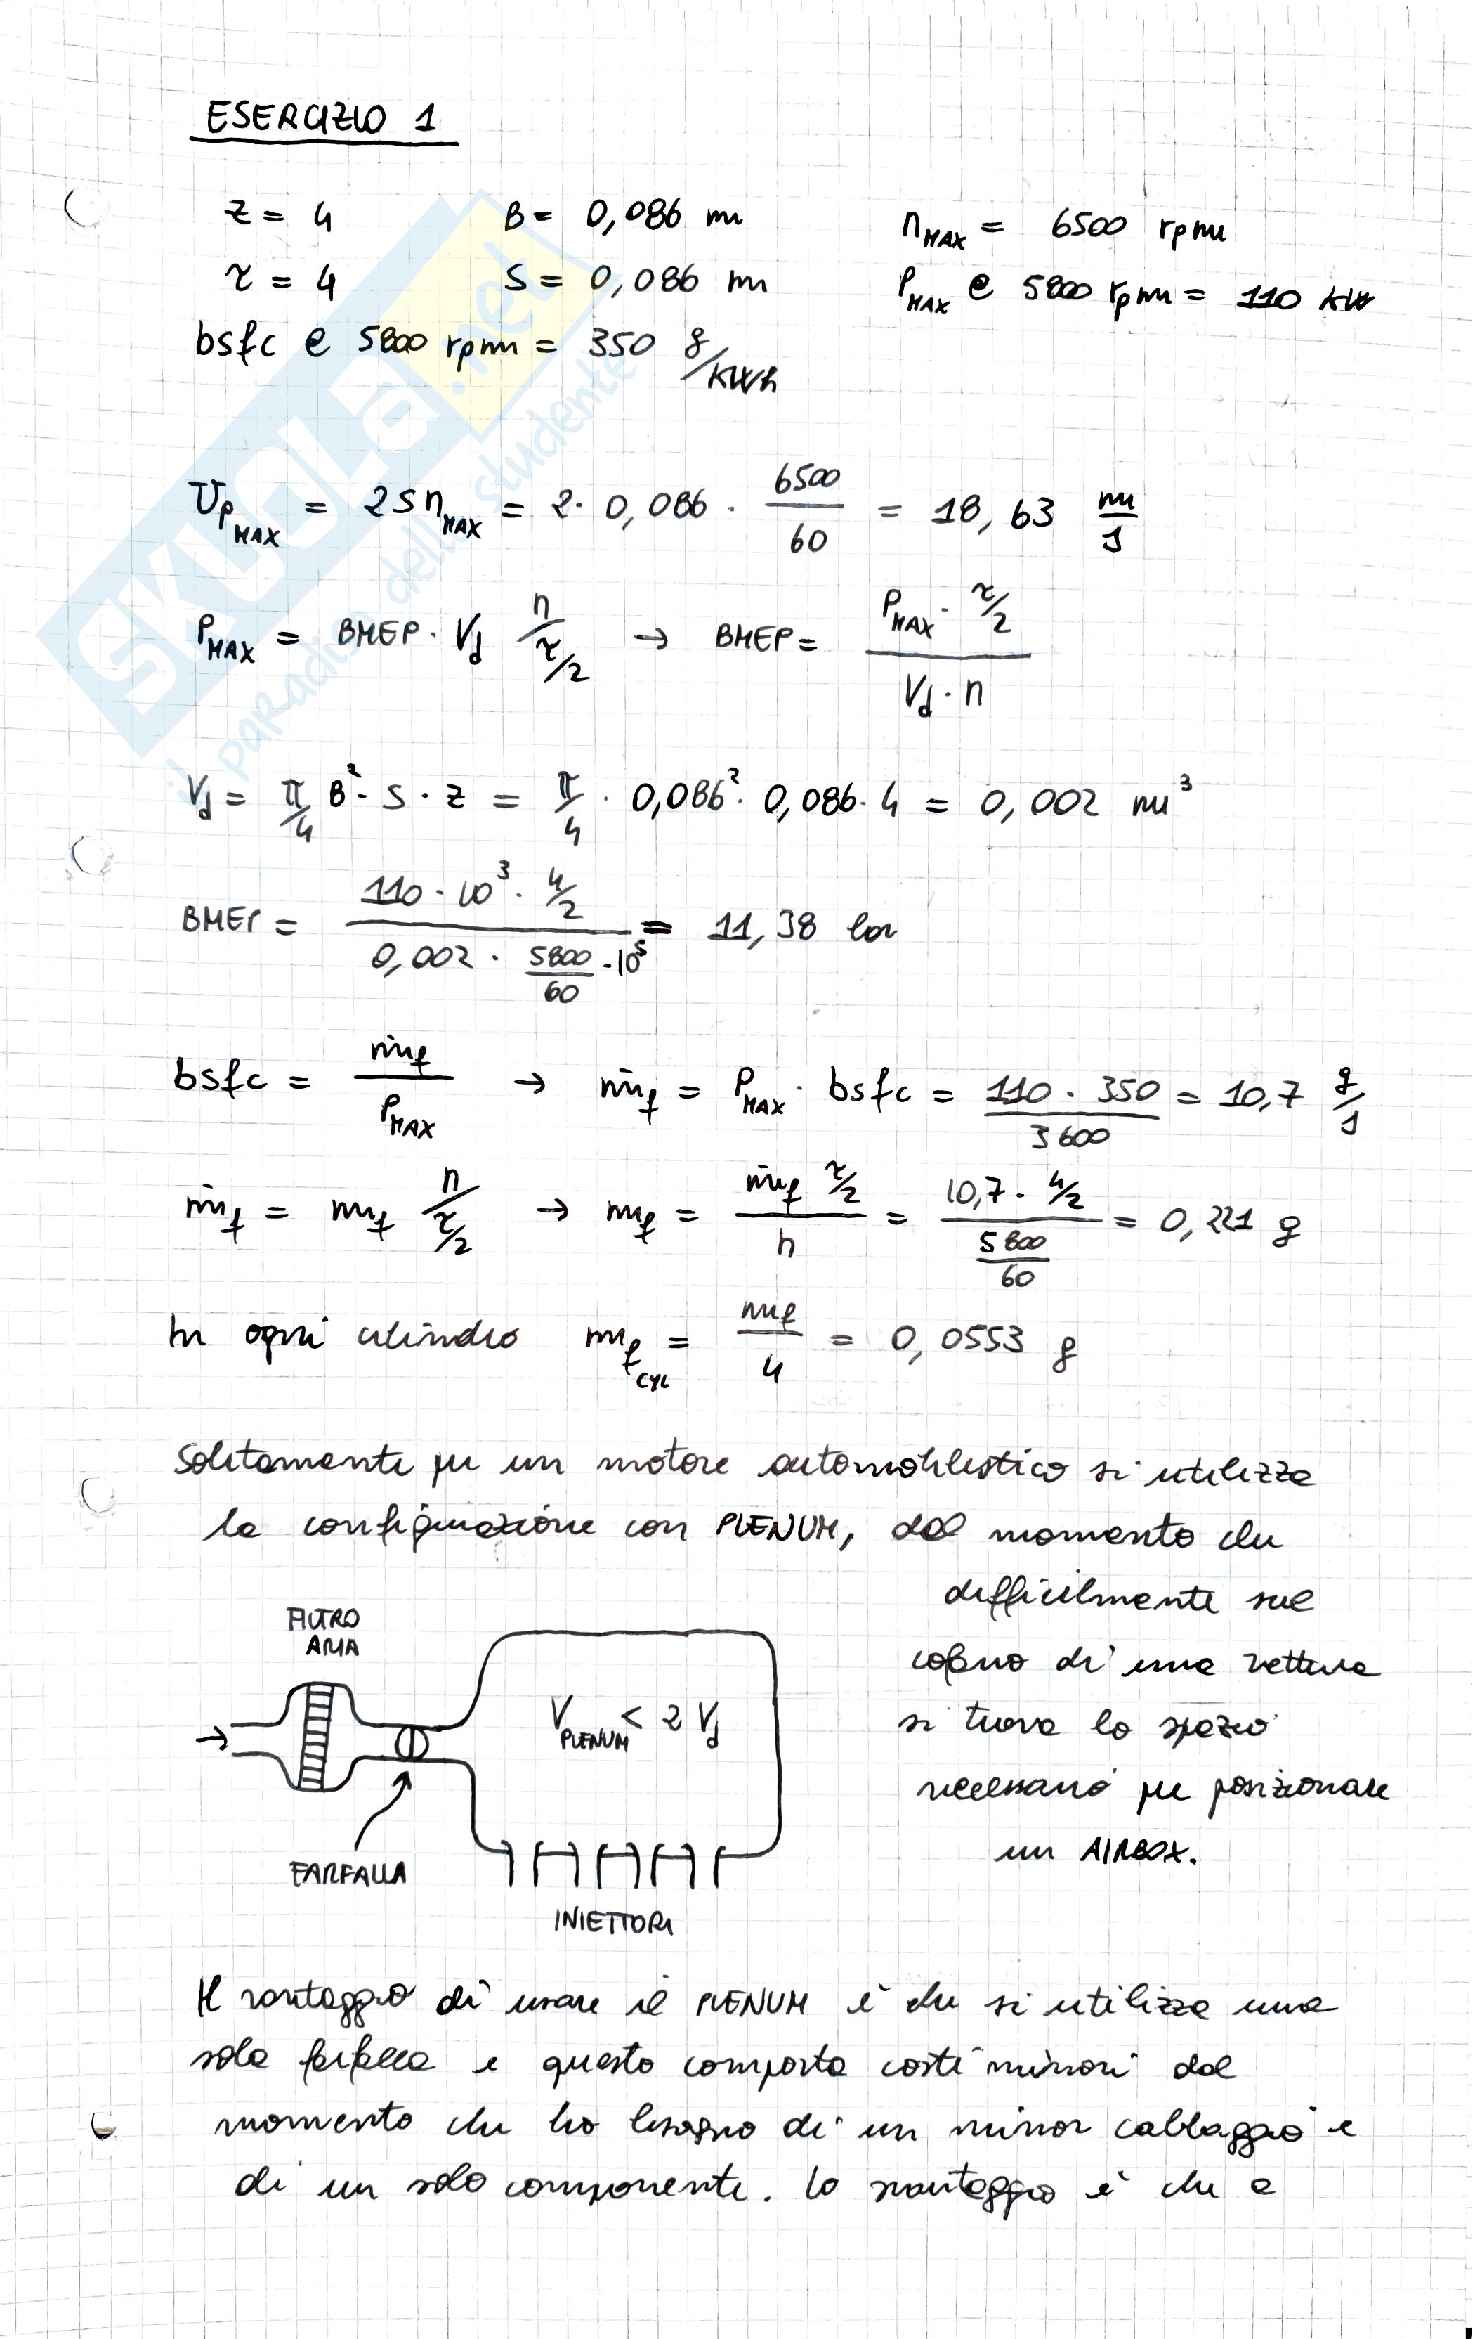 ESERCIZIO 1
z = 4 B = 0,086 m n_MAX = 6500 rpm
τ = 4 S = 0,086 m P_MAX @ 5800 rpm = 110 kW
bsfc @ 5800 rpm = 350 g/kWh
Up_MAX = 2 S n_MAX = 2 · 0,086 · 6500/60 = 18,63 m/s
P_MAX = BMEP · Vd n/(τ/2) → BMEP = (P_MAX · τ/2)/(Vd · n)
Vd = π/4 B² · S · z = π/4 · 0,086² · 0,086 · 4 = 0,002 m³
BMEP = (110 · 10³ · 4/2)/(0,002 · 5800/60 · 10⁵) = 11,38 bar
bsfc = ṁf/P_MAX → ṁf = P_MAX · bsfc = (110 · 350)/3600 = 10,7 g/s
ṁf = mf n/(τ/2) → mf = (ṁf τ/2)/n = (10,7 · 4/2)/(5800/60) = 0,221 g
In ogni cilindro mf_CYL = mf/4 = 0,0553 g
Solitamente per un motore automobilistico si utilizza
la configurazione con PLENUM, dal momento che
difficilmente sul
cofano di una vettura
si trova lo spazio
necessario per posizionare
un AIRBOX.
FILTRO
ARIA
V_PLENUM < 2 Vd
FARFALLA
INIETTORI
Il vantaggio di usare il PLENUM è che si utilizza una
sola farfalla e questo comporta costi minori dal
momento che ho bisogno di un minor cablaggio e
di un solo componente. Lo svantaggio è che a
SKUOLA.net
il paradiso dello studente